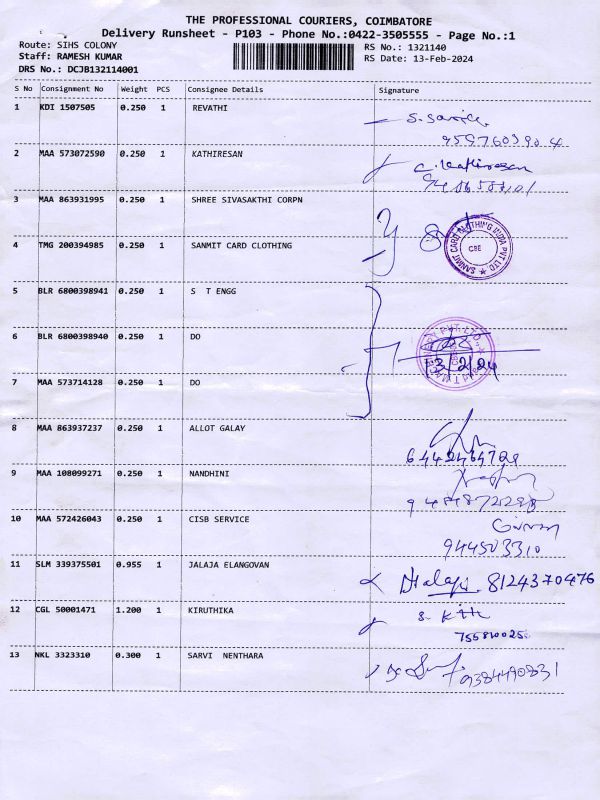 THE PROFESSIONAL COURIERS, COIMBATORE
Delivery Runsheet - P103 - Phone No.:0422-3505555 - Page No.:1
Route: SIHS COLONY
RS No.: 1321140
Staff: RAMESH KUMAR
RS Date: 13-Feb-2024
DRS No.: DCJB132114001
S No Consignment No Weight PCS Consignee Details Signature
1 KDI 1507505 0.250 1 REVATHI
2 MAA 573072590 0.250 1 KATHIRESAN
3 MAA 863931995 0.250 1 SHREE SIVASAKTHI CORPN
4 TMG 200394985 0.250 1 SANMIT CARD CLOTHING
SANMIT CARD CLOTHING INDIA PVT LTD
CBE
5 BLR 6800398941 0.250 1 S T ENGG
6 BLR 6800398940 0.250 1 DO
13/2/24
7 MAA 573714128 0.250 1 DO
8 MAA 863937237 0.250 1 ALLOT GALAY
9 MAA 108099271 0.250 1 NANDHINI
10 MAA 572426043 0.250 1 CISB SERVICE
11 SLM 339375501 0.955 1 JALAJA ELANGOVAN 8124370476
12 CGL 50001471 1.200 1 KIRUTHIKA
13 NKL 3323310 0.300 1 SARVI NENTHARA 9384490831